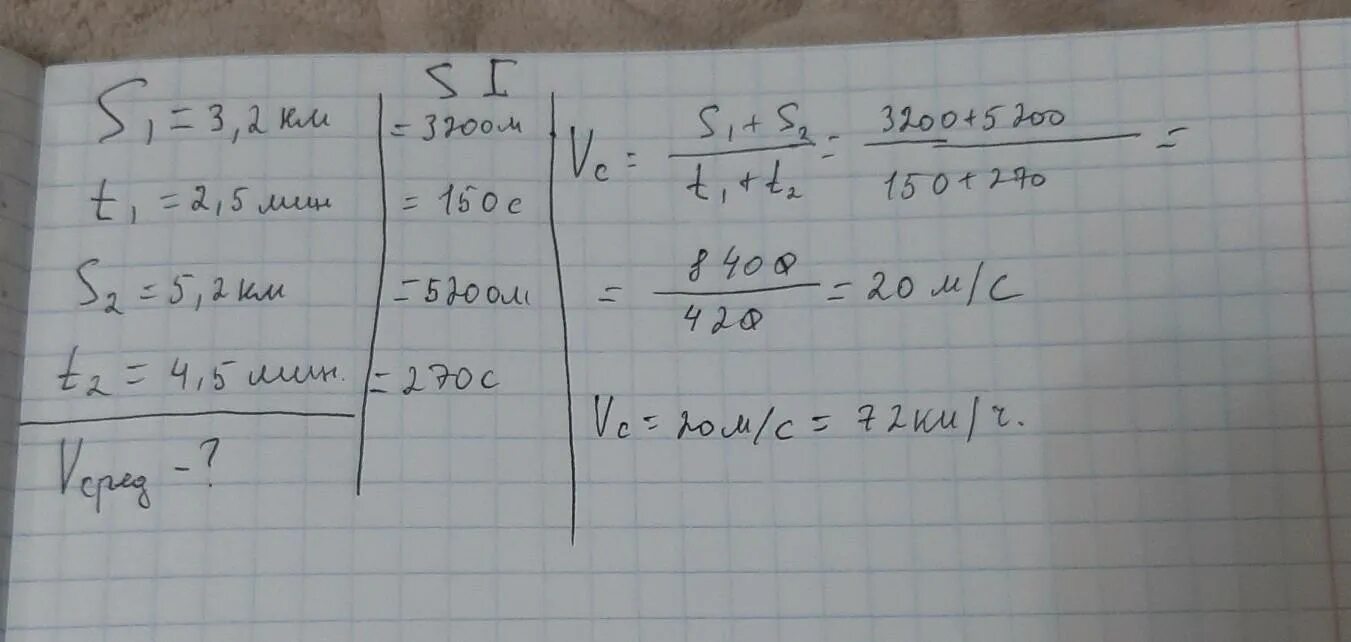 SI
S₁ = 3,2 км = 3200м
t₁ = 2,5 мин = 150с
S₂ = 5,2 км = 5200м
t₂ = 4,5 мин. = 270с
Vсред - ?
Vс = (S₁ + S₂)/(t₁ + t₂) = (3200 + 5200)/(150 + 270) =
= 8400/420 = 20 м/с
Vс = 20м/с = 72км/ч.